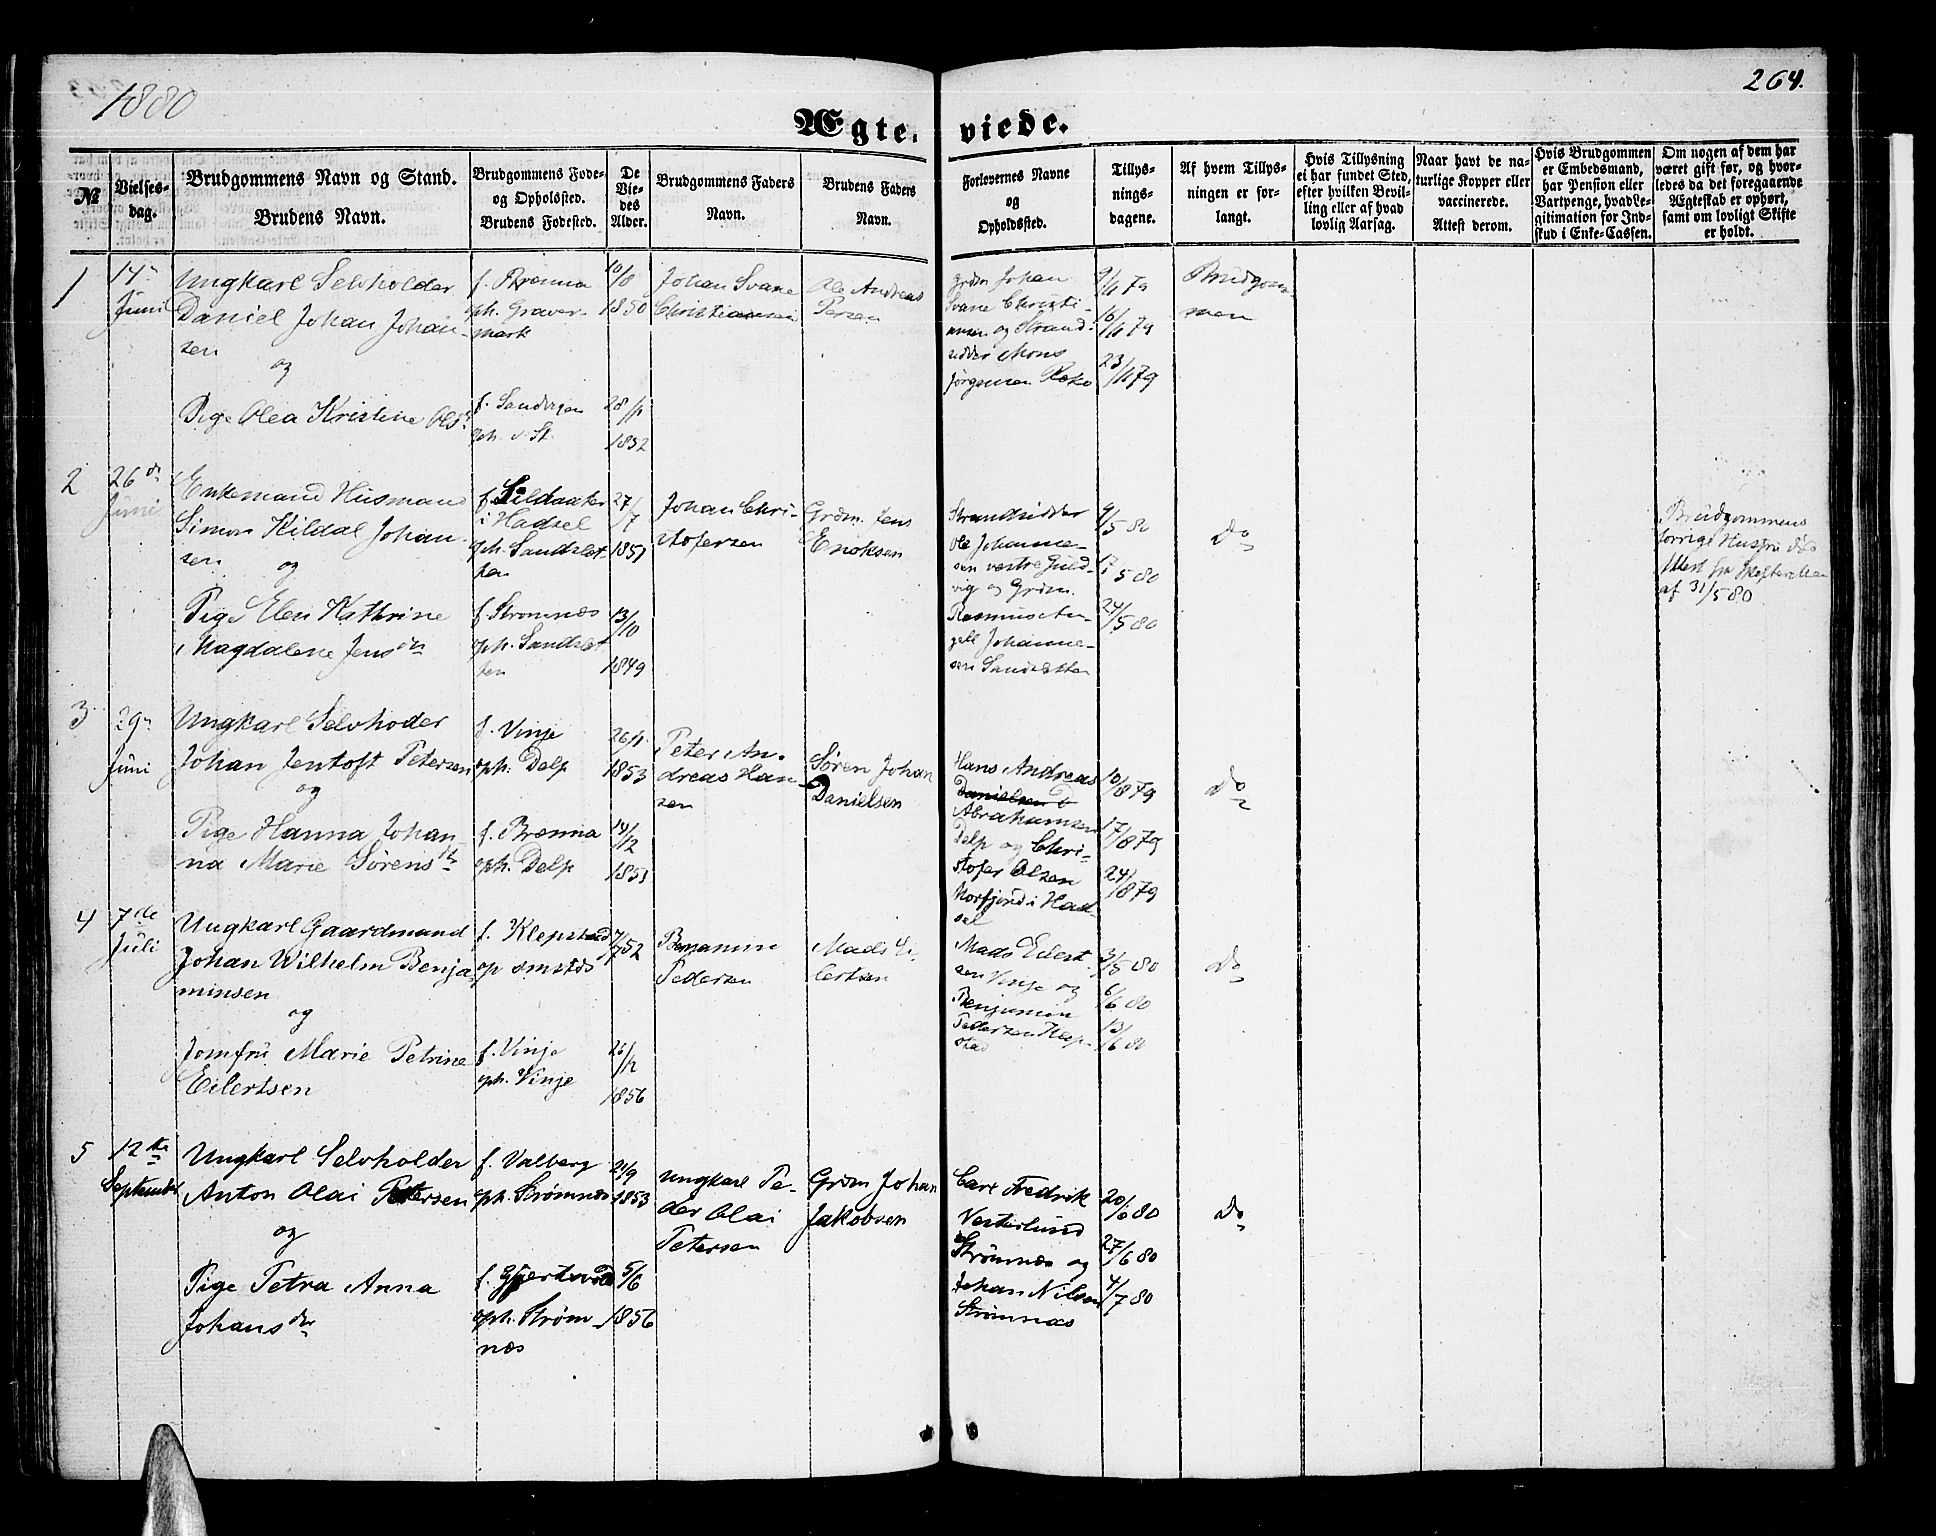 1880
264.
Ægte-
viede.
№
Vielses-
dag.
Brudgommens Navn og Stand.
Brudens Navn.
Brudgommens Føde-
og Opholdsted.
Brudens Fødested.
De
Vie-
des
Alder.
Brudgommens Faders
Navn.
Brudens Faders
Navn.
Forlovernes Navne
og
Opholdssted.
Tillys-
nings-
dagene.
Af hvem Tillys-
ningen er for-
langt.
Hvis Tillysning
ei har fundet Sted,
efter hvilken Bevil-
ling eller af hvad
lovlig Aarsag.
Naar havt de na-
turlige Kopper eller
vaccinerede.
Attest derom.
Hvis Brudgommen
er Embedsmand,
har Pension eller
Vartpenge, hvad Le-
gitimation for Ind-
skud i Enke-Cassen.
Om nogen af dem har
været gift før, og hvor-
ledes da det foregaaende
Ægteskab er ophørt,
samt om lovligt Skifte
er holdt.
1
14n
Juni
Ungkarl Selvholder
Daniel Johan Johan-
sen
og
Pige Olea Kristine Olsdr
f. Brenna
oph. Graver-
mark
f. Sandvigen
10/8
1850
28/1
1852
Johan Svane
Christiansen
Ole Andreas
Persen
Grdm Johan
Svane Christi-
ansen og Strand-
sidder Mons
Jørgensen
9/11 79
16/11 79
23/11 79
Brudgom-
men
2
26de
Juni
Enkemand Husmand
Simon Kildal Johan-
sen og
Pige Elen Kathrine
Magdalene Jensdtr
f. Sildaaker
i Hadsel
oph. Sandslet-
ten
f. Strømnæs
oph. Sandslet
ten
27/7
1851
13/10
1849
Johan Chri-
stofersen
Grdm. Jens
Enoksen
Strandsidder
Ole Johanne-
sen vestre Guld-
vig og Grdm.
Rasmus An-
gell Johanne-
sen Sandsletten
9/5 80
17/5 80
24/5 80
do
Brudgommens
forrige Hustru død
Attest fra Skifteretten
af 31/5 80
3
29n
Juni
Ungkarl Selvhoder
Johan Jentoft Petersen
og
Pige Hanna Johan-
na Marie Sørensdtr
f. Vinje
oph. Delp
f. Brenna
oph. Delp
26/1
1853
14/12
1853
Peter An-
dreas Han-
sen
Søren Johan
Danielsen
Hans Andreas
Danielsen
Abrahamsen
Delp og Chri-
stofer Olsen
Morfjord i Had-
sel
10/8 79
17/8 79
24/8 79
do
4
7de
Juli
Ungkarl Gaardmand
Johan Wilhelm Benja-
minsen
og
Jomfru Marie Petrine
Eilertsen
f. Klepstad
op smstds
f. Vinje
oph. Vinje
7/7 52
26/12
1856
Benjamin
Pedersen
Mads Ei-
lertsen
Mads Eilert-
sen Vinje og
Benjamin
Pedersen Klep-
stad
3/5 80
6/6 80
13/6 80
do
5
12te
September
Ungkarl Selvholder
Anton Olai Petersen
og
Pige Petra Anna
Johansdtr
f. Valberg
oph. Strømnæs
oph. Strøm-
næs
21/9
1853
5/6
1856
Ungkarl Pe-
der Olai
Petersen
Grdm Johan
Jakobsen
Carl Fredrik
Vesterlund
Strømnæs og
Johan Nilsen
Strømnæs
20/6 80
27/6 80
4/7 80
do